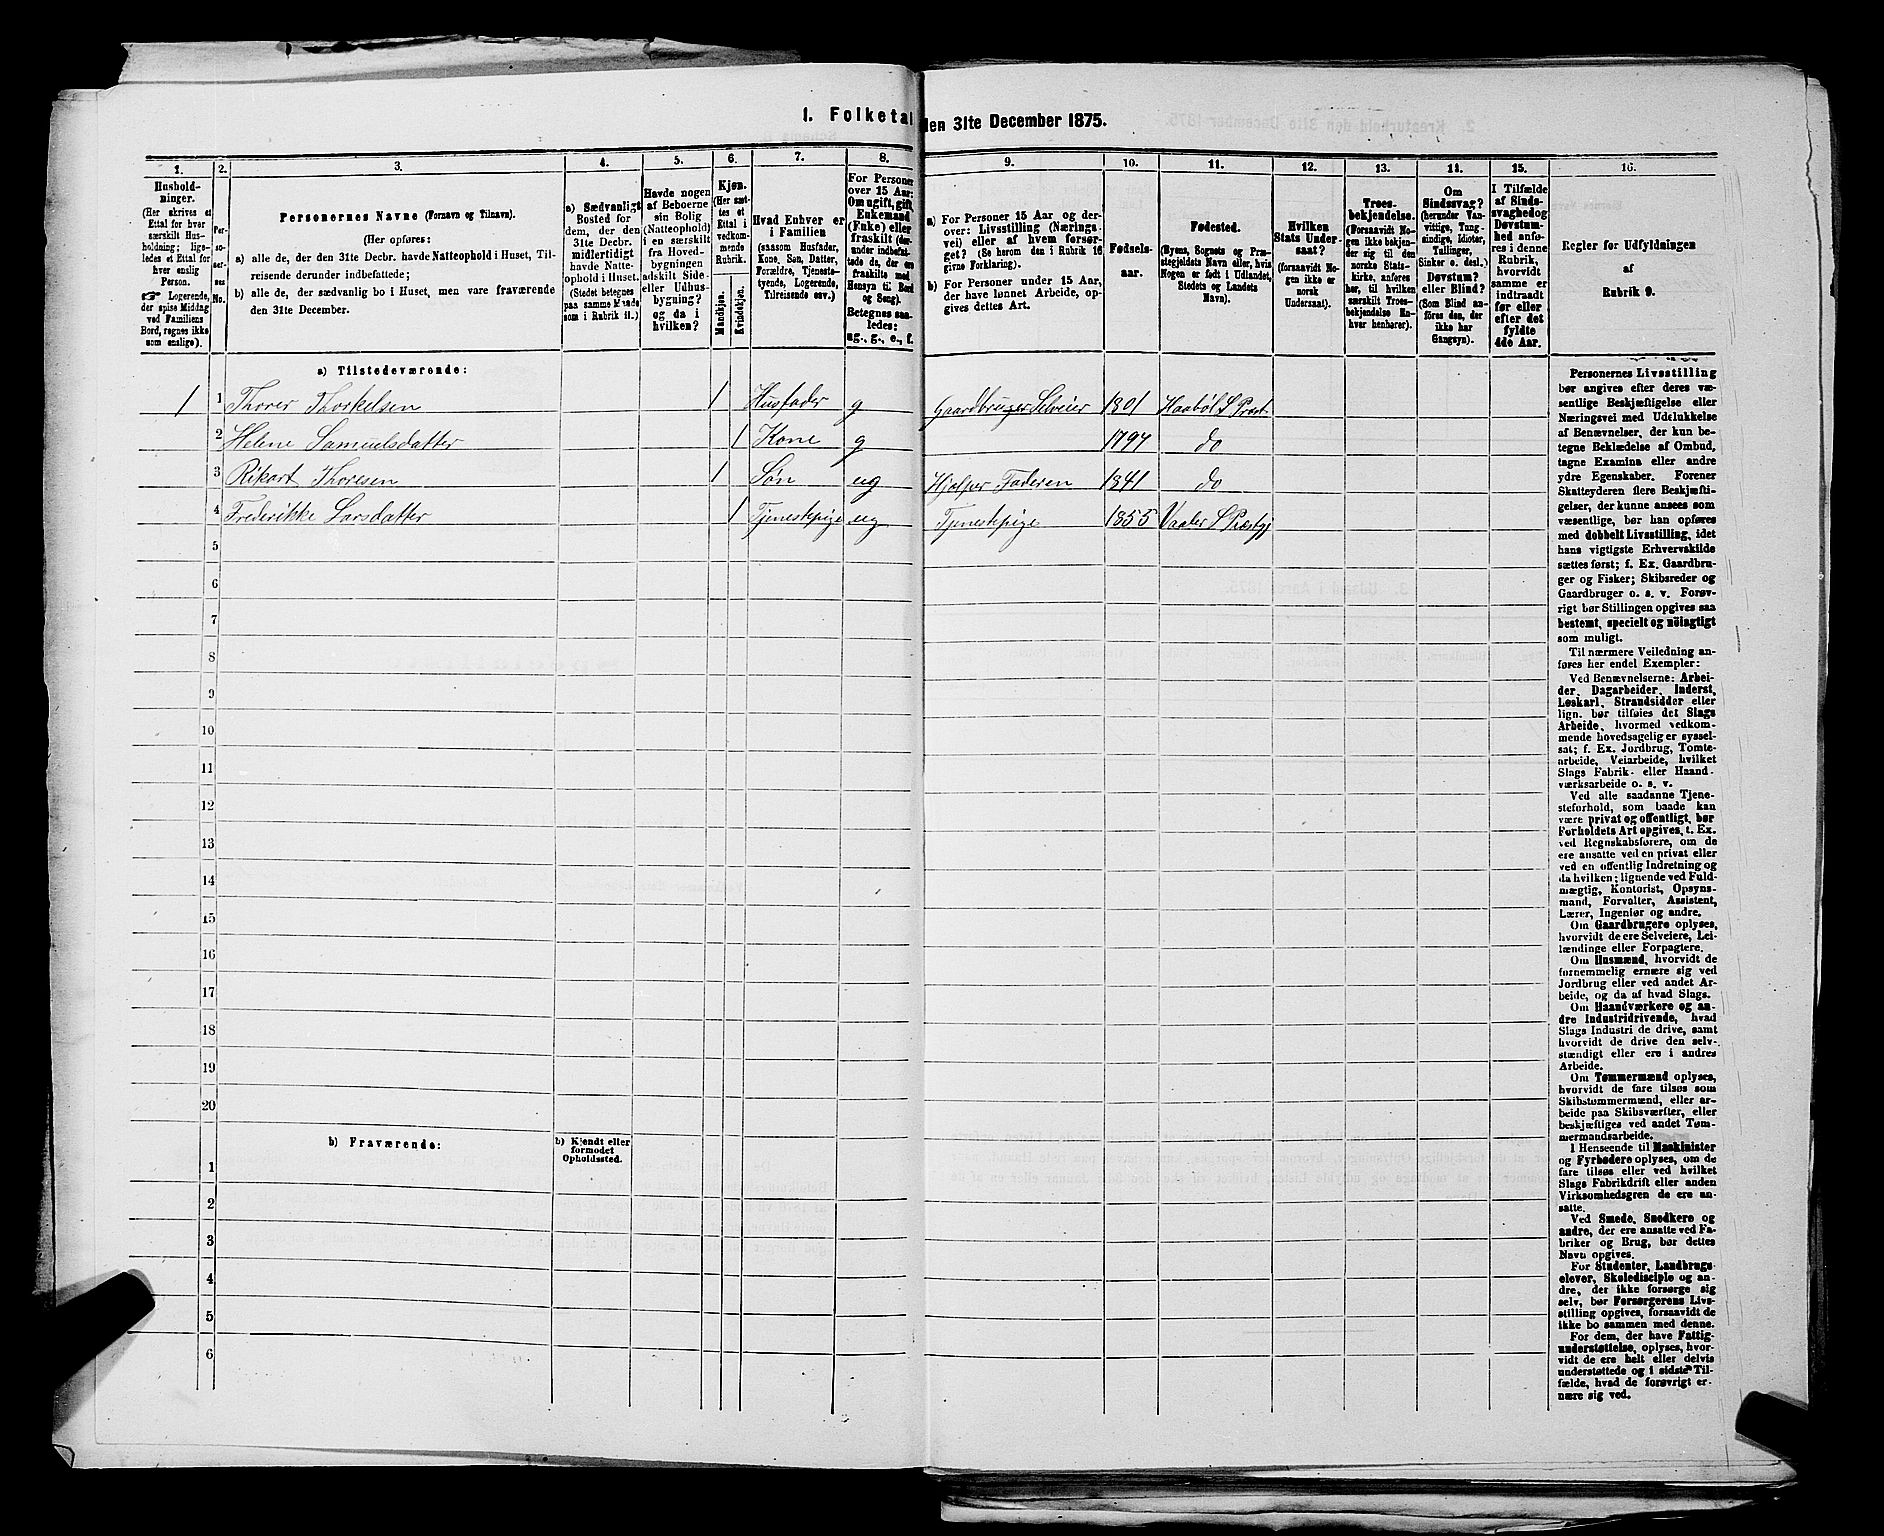 1. Folketal den 31te December 1875.
1. 2. 3. 4. 5. 6. 7. 8. 9. 10. 11. 12. 13. 14. 15. 16.
Hushold-
ninger.
(Her skrives et
Ettal for hver
særskilt Hus-
holdning; lige-
ledes et Ettal for
hver enslig
Person.
☞ Logerende,
der spise Middag
ved Familiens
Bord, regnes ikke
som enslige).
Per-
so-
ner-
nes
No.
Personernes Navne (Fornavn og Tilnavn).
(Her opføres:
a) alle de, der den 31te Decbr. havde Natteophold i Huset, Til-
reisende derunder indbefattede;
b) alle de, der sædvanlig bo i Huset, men vare fraværende
den 31te December).
a) Sædvanligt
Bosted for
dem, der den
31te Decbr.
midlertidigt
havde Natte-
ophold i Huset.
(Stedet betegnes
paa samme Maade
som i Rubrik 11.)
Havde nogen
af Beboerne
sin Bolig
(Natteophold)
i en særskilt
fra Hoved-
bygningen
adskilt Side-
eller Udhus-
bygning?
og da i
hvilken?
Kjøn.
(Her sæt-
tes et
Ettal i
vedkom-
mende
Rubrik.
Mandkjøn.
Kvindekjøn.
Hvad Enhver er
i Familien
(saasom Husfader,
Kone, Søn, Datter,
Forældre, Tjeneste-
tyende, Logerende,
Tilreisende osv.)
For Personer
over 15 Aar:
Om ugift, gift,
Enkemand
(Enke) eller
fraskilt (der-
under indbefat-
tede da, der ere
fraskilte med
Hensyn til Bord
og Seng).
Betegnes saa-
ledes:
ug., g., e., f.
a) For Personer 15 Aar og der-
over: Livsstilling (Nærings-
vei) eller af hvem forsør-
get? (Se herom den i Rubrik 16
givne Forklaring).
b) For Personer under 15 Aar,
der have lønnet Arbeide, op-
gives dettes Art.
Fødsels-
aar.
Fødested.
(Byens, Sognets og Præ-
stegjeldets Navn eller, hvis
Nogen er født i Udlandet,
Stedets og Landets
Navn).
Hvilken
Stats Under-
saat?
(forsaavidt No-
gen ikke er
norsk
Undersaat).
Troes-
bekjendelse.
(Forsaavidt No-
gen ikke bekjen-
der sig til den
norske Stats-
kirke, anføres
her, til hvilken
særskilt Troes-
bekjendelse En-
hver henhører).
Om
Sindssvag?
(herunder Van-
vittige, Tung-
sindige, Idioter,
Tullinger,
Sinker o. desl.)
Døvstum?
eller Blind?
(Som Blind an-
føres den, der
ikke har
Gangsyn).
I Tilfælde
af Sinds-
svaghed og
Døvstum-
hed anfø-
res i denne
Rubrik,
hvorvidt
samme er
indtraadt
før eller
efter det
fyldte
4de Aar.
Regler for Udfyldningen
af
Rubrik 9.
a) Tilstedeværende:
1 1 Thorer Thorkelsen 1 Husfader g Gaardbruger Selveier 1801 Haabøl S Præst.
2 Helene Samuelsdatter 1 Kone g 1794 do
3 Rikart Thoresen 1 Søn ug Hjælper Faderen 1841 do
4 Frederikke Larsdatter 1 Tjenestepige ug Tjenestepige 1855 Vaaler S Præstgj
5
6
7
8
9
10
11
12
13
14
15
16
17
18
19
20
b) Fraværende:
b) Kjendt eller
formodet
Opholdssted.
1
2
3
4
5
6
Personernes Livsstilling
bør angives efter deres væ-
sentlige Beskjæftigelse eller
Næringsvei med Udelukkelse
af Benævnelser, der kun be-
tegne Beklædelse af Ombud,
tagne Examina eller andre
ydre Egenskaber. Forener
Skatteyderen flere Beskjæfti-
gelser, der kunne ansees som
væsentlige, bør han opføres
med dobbelt Livsstilling, idet
hans vigtigste Erhvervskilde
sættes først; f. Ex. Gaardbru-
ger og Fisker; Skibsreder og
Gaardbruger o. s. v. Forøv-
rigt bør Stillingen opgives saa
bestemt, specielt og nöiagtigt
som muligt.
Til nærmere Veiledning an-
føres her endel Exempler:
Ved Benævnelserne: Arbei-
der, Dagarbeider, Inderst,
Løskarl, Strandsidder eller
lign. bør tilføies det Slags
Arbeide, hvormed vedkom-
mende hovedsagelig er syssel-
sat; f. Ex. Jordbrug, Tomte-
arbeide, Veiarbeide, hvilket
Slags Fabrik- eller Haand-
værksarbeide o. s. v.
Ved alle saadanne Tjene-
steforhold, som baade kan
være privat og offentligt, bør
Forholdets Art opgives, t. Ex.
ved Regnskabsførere, om de
ere ansatte ved en privat eller
ved en offentlig Indretning og
da hvilken; lignende ved Fuld-
mægtig, Kontorist, Opsyns-
mand, Forvalter, Assistent,
Lærer, Ingeniør og andre.
Om Gaardbrugere oplyses,
hvorvidt de ere Selveiere, Lei-
lændinge eller Forpagtere.
Om Husmænd, hvorvidt de
fornemmelig ernære sig ved
Jordbrug eller ved andet Ar-
beide, og da af hvad Slags.
Om Haandværkere og an-
dre Industridrivende, hvad
Slags Industri de drive, samt
hvorvidt de drive den selv-
stændigt eller ere i andres
Arbeide.
Om Tømmermænd oplyses,
hvorvidt de fare tilsøs som
Skibstømmermænd, eller ar-
beide paa Skibsværfter, eller
beskjæftiges ved andet Tøm-
mermandsarbeide.
I Henseende til Maskinister
og Fyrbødere oplyses, om de
fare tilsøs eller ved hvilket
Slags Fabrikdrift eller anden
Virksomhedsgren de ere an-
satte.
Ved Smede, Snedkere og
andre, der ere ansatte ved Fa-
briker og Brug, bør dettes
Navn opgives.
For Studenter, Landbrugs-
elever, Skoledisciple og an-
dre, der ikke forsørge sig
selv, bør Forsørgerens Livs-
stilling opgives, forsaavidt de
ikke bo sammen med denne.
For dem, der have Fattig-
understøttelse, oplyses, hvor-
vidt de ere helt eller delvis
understøttede og i sidste Til-
fælde, hvad de forøvrigt er-
nære sig ved.